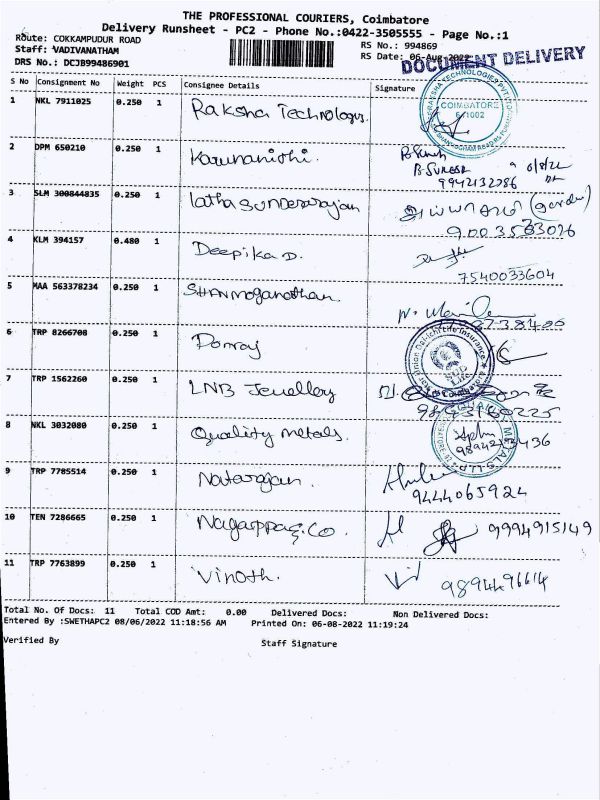 THE PROFESSIONAL COURIERS, Coimbatore
Delivery Runsheet - PC2 - Phone No.:0422-3505555 - Page No.:1
Route: COKKAMPUDUR ROAD
RS No.: 994869
Staff: VADIVANATHAM
RS Date: 06-Aug-2022
DOCUMENT DELIVERY
DRS No.: DCJB99486901
S No Consignment No Weight PCS Consignee Details Signature
1 NKL 7911025 0.250 1 Raksha Technologys.
COIMBATORE
641002
2 DPM 650210 0.250 1 Karunanithi.
B. SURESH 6/8/22
9942132086
3 SLM 300844835 0.250 1 latha SUNDERARAJAN
அய்யாசாமி (gordu)
4 KLM 394157 0.480 1 Deepika D.
7540033604
5 MAA 563378234 0.250 1 SHANmoganathan.
6 TRP 8266708 0.250 1 Ponraj
Star Union Dai-ichi Life Insurance
SUD
Life
7 TRP 1562260 0.250 1 LNB Jewellery
8 NKL 3032080 0.250 1 Quality metals.
9 TRP 7785514 0.250 1 Natarajan.
9444065924
10 TEN 7286665 0.250 1 Nagarppa & Co.
9994915149
11 TRP 7763899 0.250 1 Vinoth.
9894496614
Total No. Of Docs: 11 Total COD Amt: 0.00 Delivered Docs: Non Delivered Docs:
Entered By :SWETHAPC2 08/06/2022 11:18:56 AM Printed On: 06-08-2022 11:19:24
Verified By Staff Signature